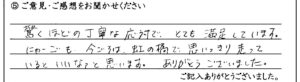 ⑤ご意見・ご感想をお聞かせください
驚くほどの丁寧な応対で、とても満足しています。
にゃーごも今ごろは、虹の橋で思いっきり走って
いるといいなぁと思います。ありがとうございました。
ご記入ありがとうございました。